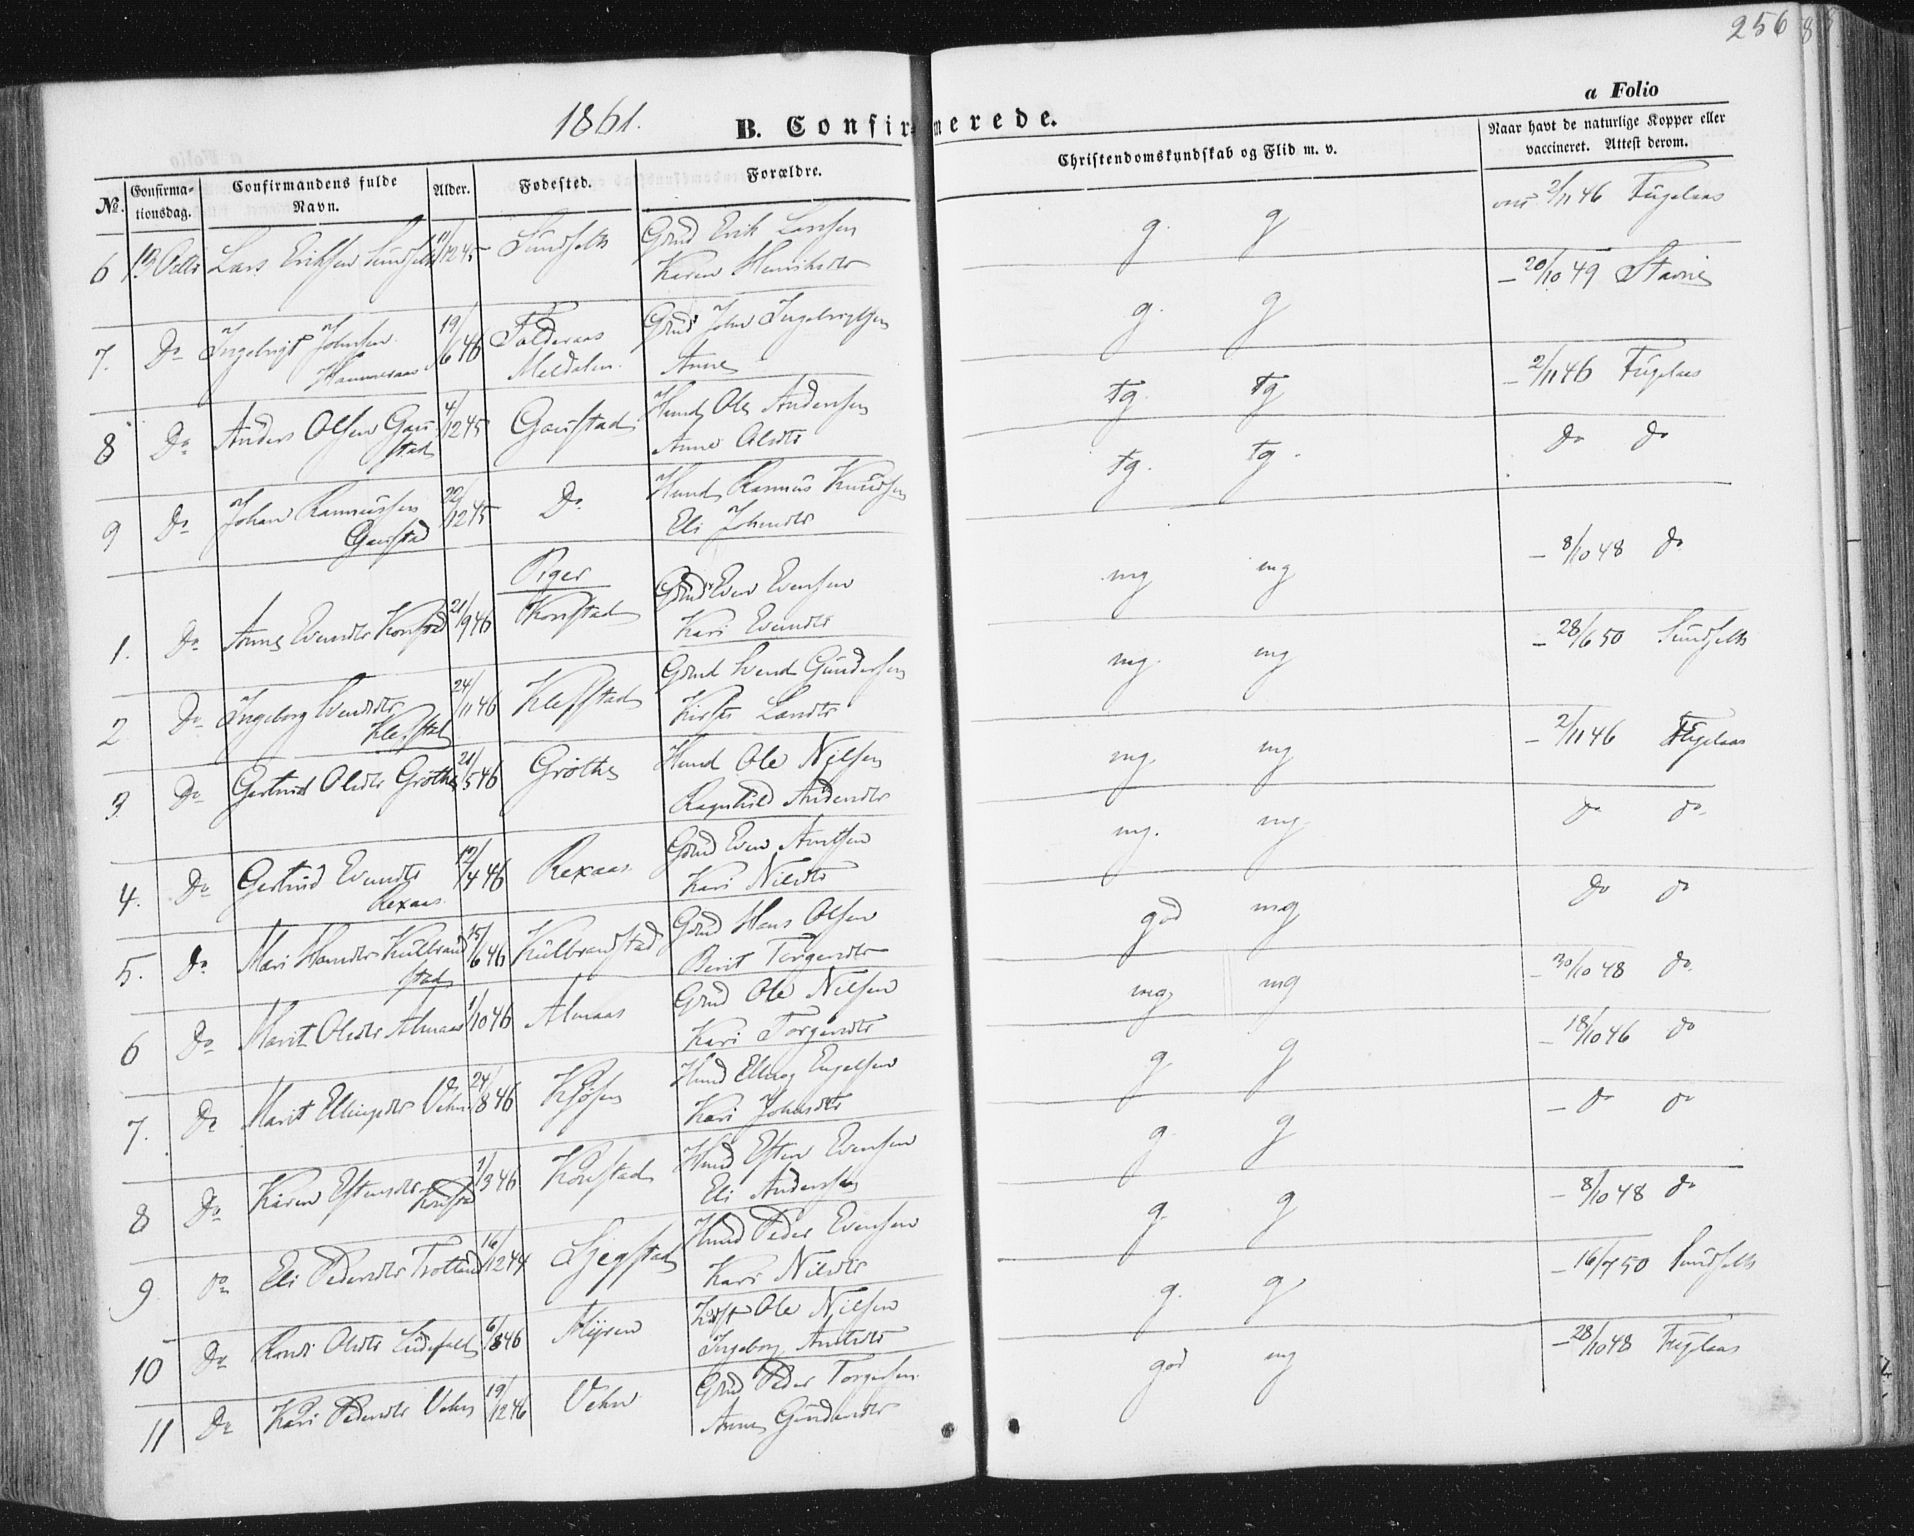 256
1861.
B. Confirmerede.
a Folio
No.
Confirmationsdag.
Confirmandens fulde Navn.
Alder.
Fødested.
Forældre.
Christendomskundskab og Flid m. v.
Naar havt de naturlige Kopper eller vaccineret. Attest derom.
6 13 Octbr Lars Eriksen 11/12 45 Sundseth Gmd Erik Larsen g. g 2/11 46 Fugelaas
Karen Henriksdtr
7. Do Ingebrigt Johnsen 19/6 46 Foldesaas Gmd John Ingebrigtsen g. g – 20/10 49 Stavne
Hammeraas Meldalen. Anne
8 Do Anders Olsen Gau- 4/12 45 Gaustad Huusmd Ole Andersen Tg. Tg – 2/11 46 Fugelaas
stad Anne Olsdtr
9 Do Johan Rasmussen 22/12 45 Do Huusmd Rasmus Knudsen Tg. Tg. do do
Gaustad Eli Johnsdtr
Piger
1. Do Anne Evensdtr Konstad 21/9 46 Konstad Gmd Even Evensen mg mg – 8/10 48 do
Kari Evensdtr
2 Do Ingeborg Svendsdtr 24/11 46 Klefstad Gmd Svend Gundersen mg. mg – 28/6 50 Sundseth
Klefstad Kirsti Larsdtr
3 Do Gertrud Olsdtr Grøthe 21/5 46 Grøthe Huusmd Ole Nilsen mg. mg – 2/11 46 Fugelaas
Ragnhild Andersdtr
4. Do Gertrud Evensdtr 12/4 46 Rexaas Gmd Even Arntsen mg. mg do do
Rexaas. Kari Nilsdtr
5. Do Mari Hansdtr Kulbrand 15/6 46 Kulbrandstad Gmd Hans Olsen god mg do do
stad Berit Torgersdtr
6 Do Marit Olsdtr Almaas 1/10 46 Almaas Gmd Ole Nilsen mg mg – 30/10 48 do
Kari Torgersdtr
7. Do Marit Ellingsdtr Vehn 24/8 46 Kjøsen Huusmd Elling Engelsen g. g – 18/10 46 do
Kari Johnsdtr
8 Do Karen Estensdtr 1/3 46 Konstad Huusmd Esten Evensen g. g – do do
Konstad Eli Andersdtr
9 Do Eli Pedersdtr 16/12 44 Huusmd Peder Evensen g. g – 8/10 48 do
Kari Nilsdtr
10 Do Olsdtr 6/8 46 Myren Ole Nilsen g. g – 16/7 50 Sundseth
Ingeborg Arntsdtr
11 Do Kari Pedersdtr Vehn 19/12 46 Vehn Gmd Peder Torgersen god mg – 28/10 48 Fugelaas
Anne Gundersdtr